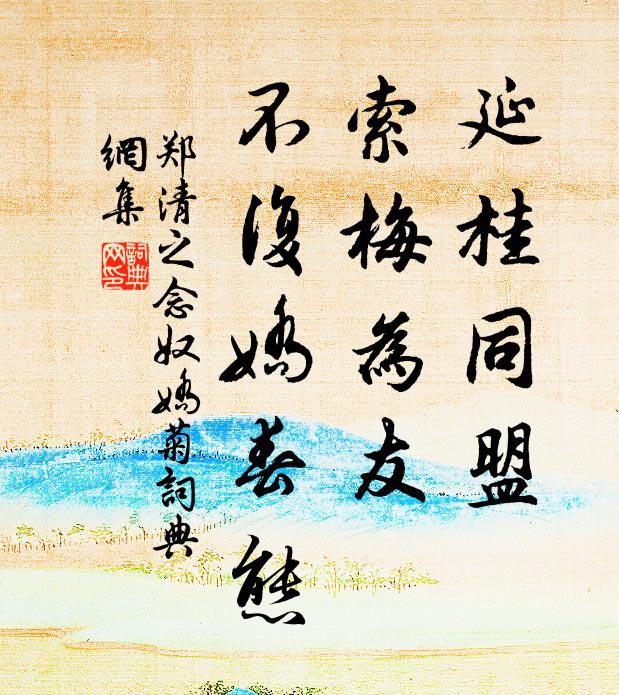 延桂同盟
索梅為友
不復嬌春態
郑清之念奴嬌菊詞典
網集
詞典
网印